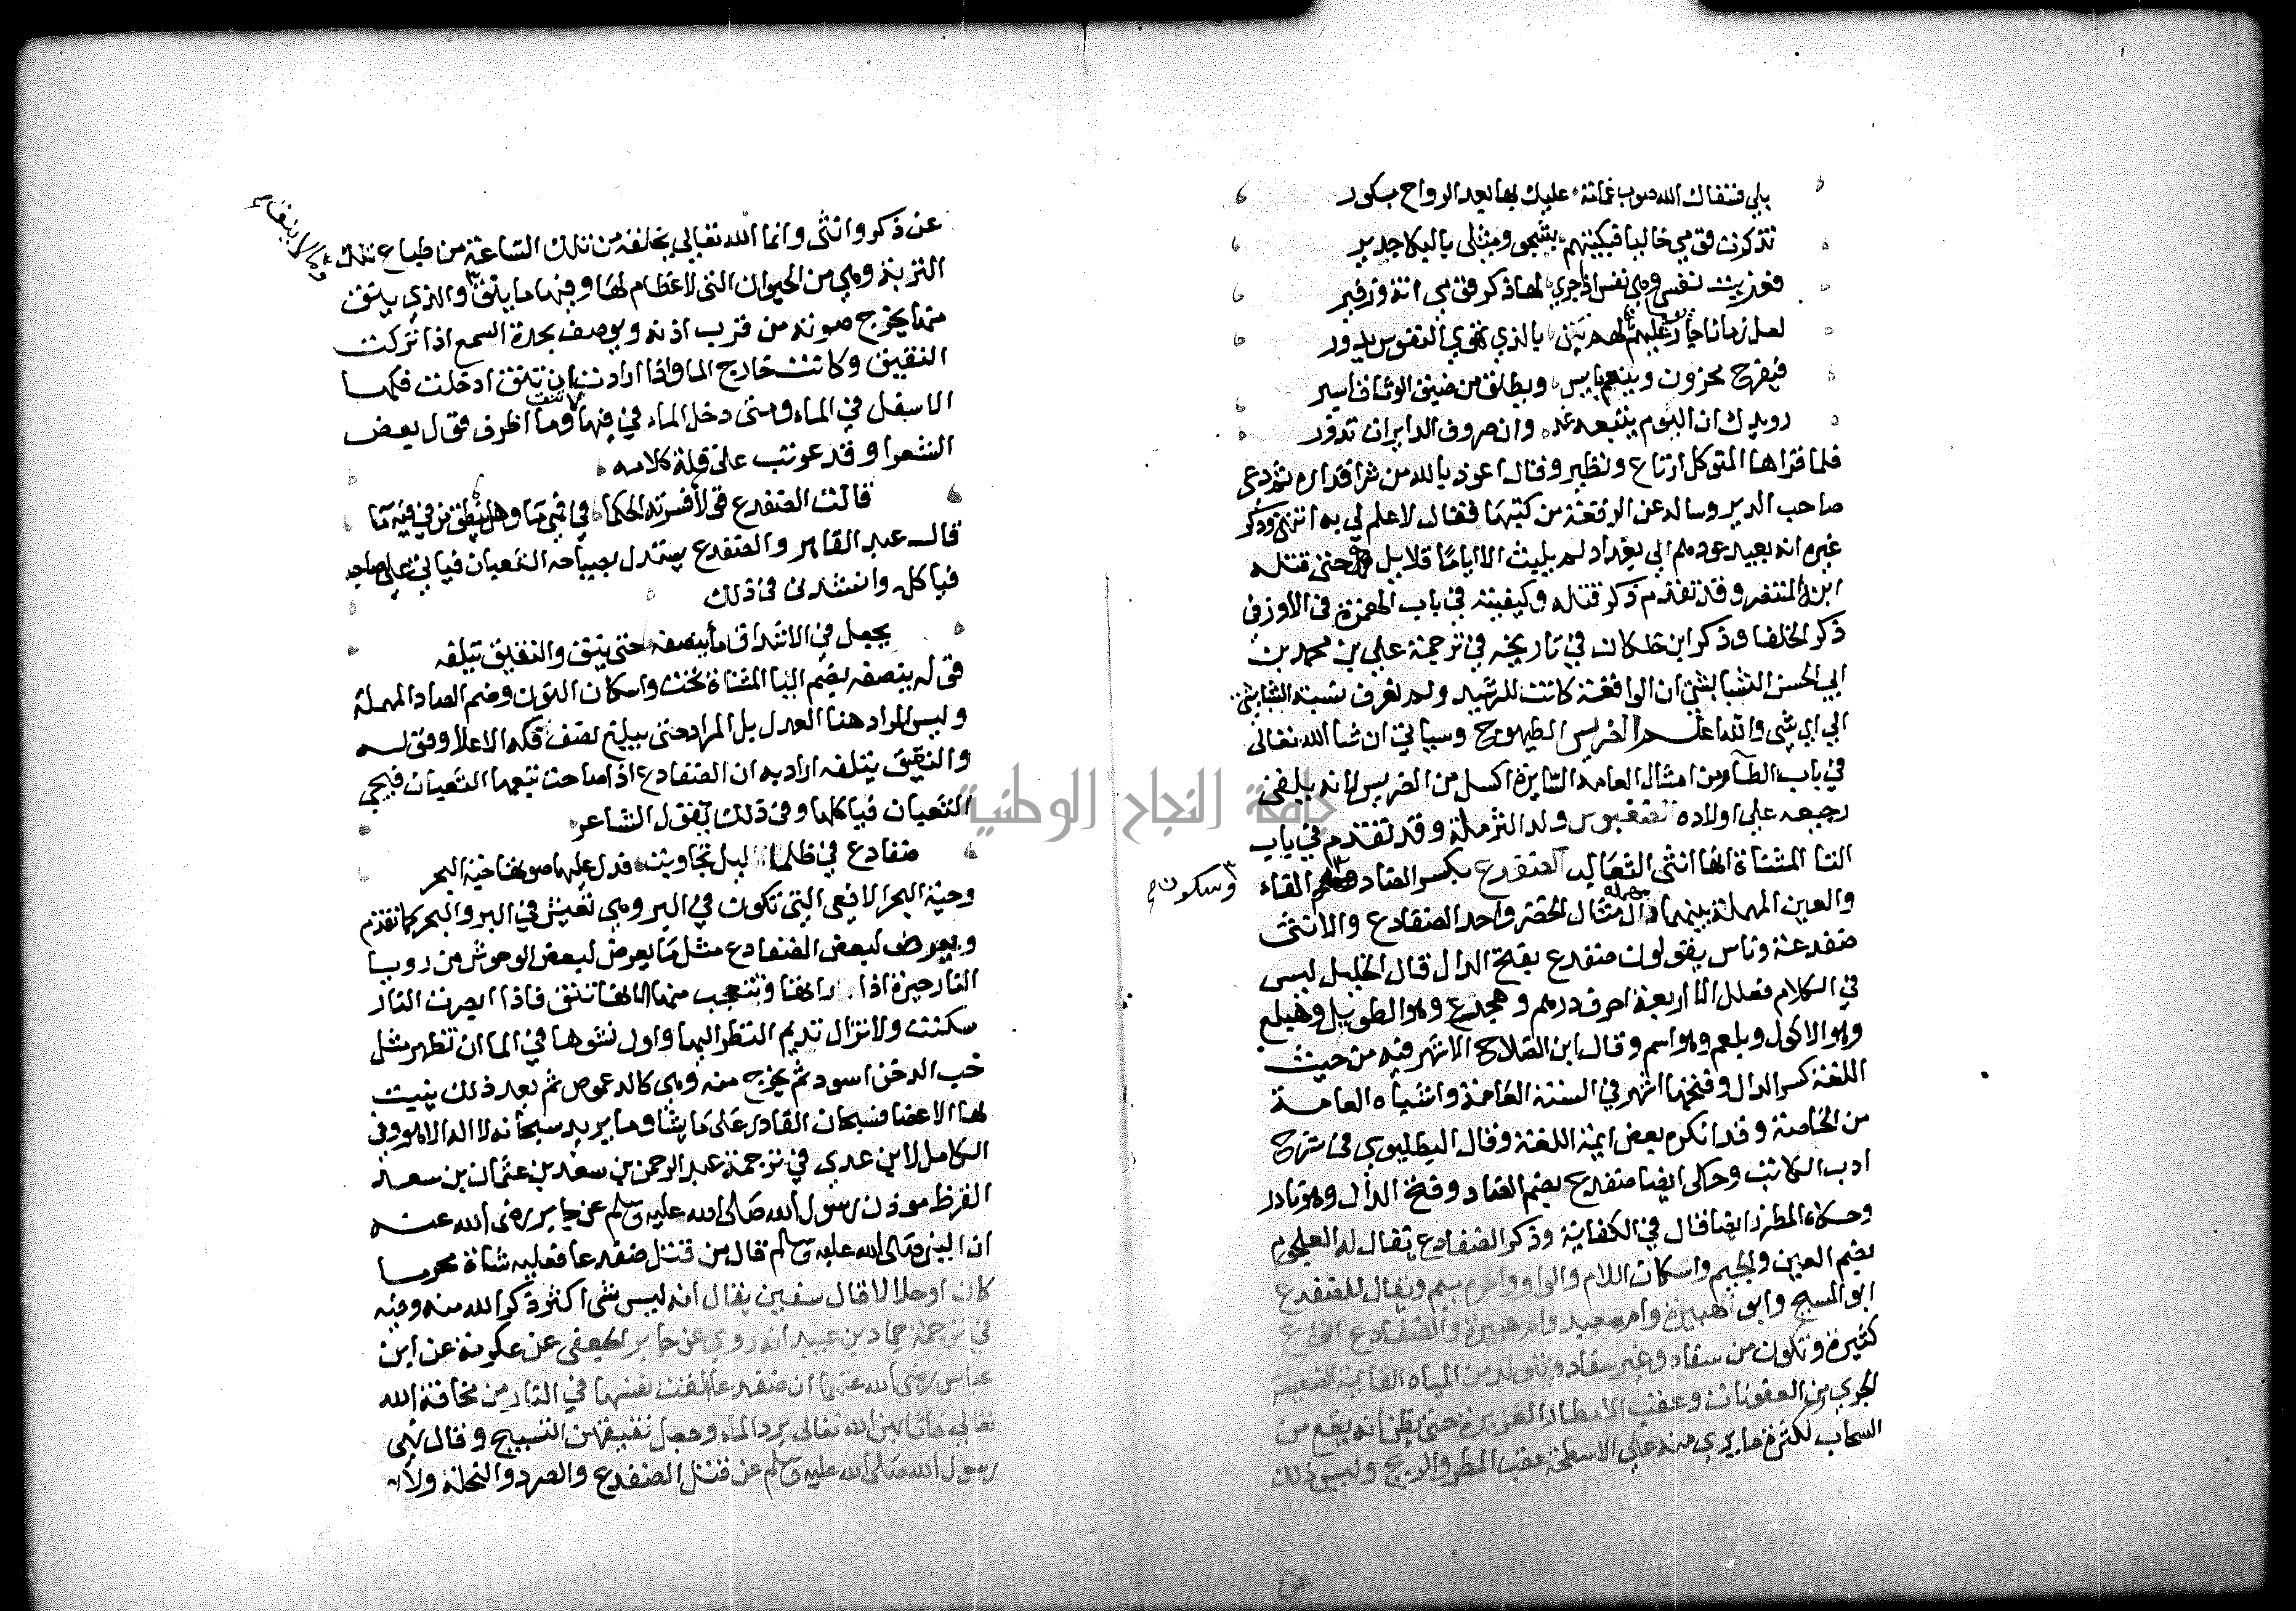 بلي فسقاك الله صوب غمامة عليك بها بعد الرواح بكور
تذكرت قومي خاليا فبكيتهم بشجو ومثلي بالبكا جدير
فعزيت نفسي وهي نفس اذا جري لها ذكر قومي انة وزفير
لعل زمانا جار يوما عليهم لهم بين بالذي تهوي النفوس يدور
فيفرح محزون وينعم بايس ويطلق من ضيق الوثاق اسير
رويدك ان اليوم يتبعه غد وان صروف الدايرات تدور
فلما قراها المتوكل ارتاع وتطير وقال اعوذ بالله من شر اقداره ثم دعى
صاحب الدير وساله عن الرقعة من كتبها فقال لا علم لي به انتهى وذكر
غيره انه بعيد عوده الى بغداد لم يلبث الا اياما قلايل حتى قتله
ابنه المنتصر وقد تقدم ذكر قتله وكيفيته في باب الهمزة في الاوز في
ذكر الخلفا وذكر ابن خلكان في تاريخه في ترجمة علي بن محمد بن
ابي الحسن الشابشتي ان الواقعة كانت للرشيد ولم نعرف نسبة الشابشتي
الي اي شي والله اعلم الضريس الطيهوج وسياتي ان شا الله تعالى
في باب الطاء ومن امثال العامة السايرة اكسل من الضريس لانه يلقى
رجيعه علي اولاده الضغبوس ولد الثرملة وقد تقدم في باب
الثا المثناة انها انثى الثعالب الضفدع بكسر الضاد وسكون الفاء
والعين المهملة بينهما دال مهملة مثال الخنصر واحد الضفادع والانثى
ضفدعة وناس يقولون ضفدع بفتح الدال قال الخليل ليس
في الكلام فعلل الا اربعة احرف درهم وهجرع وهو الطويل وهبلع
وهو الاكول وبلعم وهو اسم وقال ابن الصلاح الاشهر فيه من حيث
اللغة كسر الدال وفتحها اشهر في السنة العامة واشباه العامة
من الخاصة وقد انكره بعض ايمة اللغة وقال البطليوسي في شرح
ادب الكاتب وحكى ايضا ضفدع بضم الضاد وفتح الدال وهو نادر
وحكاه المطرز ايضا قال في الكفاية وذكر الضفادع يقال له العلجوم
بضم العين والجيم واسكان اللام والواو واخره ميم ويقال للضفدع
ابو المسيح وابو هبيرة وام معبد وام هبيرة والضفادع انواع
كثيرة وتكون من سفاد وغير سفاد وتتولد من المياه القايمة الضعيفة
الجري من العفونات وعقب الامطار الغزيرة حتى يظن انه يقع من
السحاب لكثرة ما يري منه علي الاسطحة عقب المطر والريح وليس ذلك
عن
عن ذكر وانثى وانما الله تعالي يخلقه من تلك الساعة من طباع تلك
التربة وهي من الحيوان التي لا عظام لها وفيها ما ينق وما لا ينق والذي ينق
منها يخرج صوته من قرب اذنه ويوصف بحدة السمع اذا تركت
النقيق وكانت خارج الما واذا ارادت ان تنق ادخلت فكها
الاسفل في الماء ومتى دخل الماء في فيها لا تنق وما اظرف قول بعض
الشعرا وقد عوتب على قلة كلامه
قالت الضفدع قولا فسرته الحكما في فمي ما وهل ينطق من في فيه ما
قال عبد القاهر والضفدع يستدل بصياحه الثعبان فياتي علي صياحه
فياكله وانشدني في ذلك
يجعل في الاشداق ما ينصفه حتى ينق والنقيق يتلفه
قوله ينصفه بضم اليا المثناة تحت واسكان النون وضم الصاد المهملة
وليس المراد هنا العدل بل المراد حتى يبلغ نصف فكه الاعلا وقوله
والنقيق يتلفه اراد به ان الضفادع اذا صاحت تتبعها الثعبان فيجي
الثعبان فياكلها وفي ذلك يقول الشاعر
ضفادع في ظلما ليل تجاوبت فدل عليها صوتها حية البحر
وحية البحر الافعي التي تكون في البر وهي تعيش في البر والبحر كما تقدم
ويعرض لبعض الضفادع مثل ما يعرض لبعض الوحوش من رويا
النار حيرة اذا راتها وتتعجب منها لانها تنق فاذا ابصرت النار
سكتت ولا تزال تديم النظر اليها واول نشوها في الما ان تظهر مثل
حب الدخن اسود ثم يخرج منه وهي كالدعموص ثم بعد ذلك ينبت
لها الاعضا فسبحان القادر على ما يشا وما يريد سبحانه لا اله الا هو وفي
الكامل لابن عدي في ترجمة عبد الرحمن بن سعد بن عثمان بن سعد
القرظ موذن رسول الله صلى الله عليه وسلم عن جابر رضى الله عنه
ان النبي صلى الله عليه وسلم قال من قتل ضفدعا فعليه شاة محرما
كان او حلالا قال سفين يقال انه ليس شي اكثر ذكر الله منه وفيه
في ترجمة حماد بن عبيد انه روي عن جابر الجعفي عن عكرمة عن ابن
عباس رضى الله عنهما ان ضفدعا القت نفسها في النار من مخافة الله
تعالي فاثابهن الله تعالى برد الماء وجعل نقيقهن التسبيح وقال نهى
رسول الله صلى الله عليه وسلم عن قتل الضفدع والصرد والنحلة ولا
جامعة النجاح الوطنية